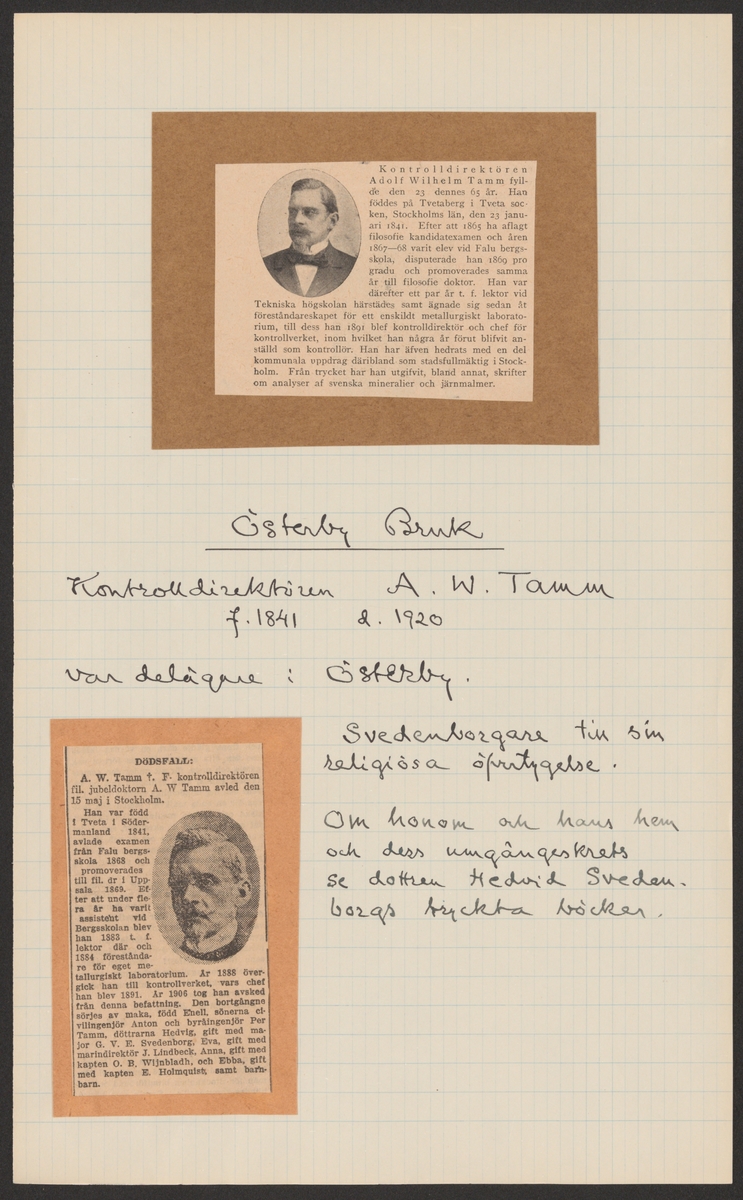 Kontrolldirektören
Adolf Wilhelm Tamm fyll-
de den 23 dennes 65 år. Han
föddes på Tvetaberg i Tveta soc-
ken, Stockholms län, den 23 janu-
ari 1841. Efter att 1865 ha aflagt
filosofie kandidatexamen och åren
1867—68 varit elev vid Falu bergs-
skola, disputerade han 1869 pro
gradu och promoverades samma
år till filosofie doktor. Han var
därefter ett par år t. f. lektor vid
Tekniska högskolan härstädes samt ägnade sig sedan åt
föreståndareskapet för ett enskildt metallurgiskt laborato-
rium, till dess han 1891 blef kontrolldirektör och chef för
kontrollverket, inom hvilket han några år förut blifvit an-
ställd som kontrollör. Han har äfven hedrats med en del
kommunala uppdrag däribland som stadsfullmäktig i Stock-
holm. Från trycket har han utgifvit, bland annat, skrifter
om analyser af svenska mineralier och järnmalmer.
Österby Bruk
Kontrolldirektören A. W. Tamm
f. 1841 d. 1920
var delägare i Österby.
Svedenborgare till sin
religiösa öfvertygelse.
Om honom och hans hem
och dess umgängeskrets
se dottren Hedvid Sveden-
borgs tryckta böcker.
DÖDSFALL:
A. W. Tamm †. F- kontrolldirektören
fil. jubeldoktorn A. W Tamm avled den
15 maj i Stockholm.
Han var född
i Tveta i Söder-
manland 1841,
avlade examen
från Falu bergs-
skola 1868 och
promoverades
till fil. dr i Upp-
sala 1869. Ef-
ter att under fle-
ra år ha varit
assistent vid
Bergsskolan blev
han 1883 t. f.
lektor där och
1884 förestånda-
re för eget me-
tallurgiskt laboratorium. År 1888 över-
gick han till kontrollverket, vars chef
han blev 1891. År 1906 tog han avsked
från denna befattning. Den bortgångne
sörjes av maka, född Enell, sönerna ci-
vilingenjör Anton och byråingenjör Per
Tamm, döttrarna Hedvig, gift med ma-
jor G. V. E. Svedenborg, Eva, gift med
marindirektör J. Lindbeck, Anna, gift med
kapten O. B. Wijnbladh, och Ebba, gift
med kapten E. Holmquist, samt barn-
barn.